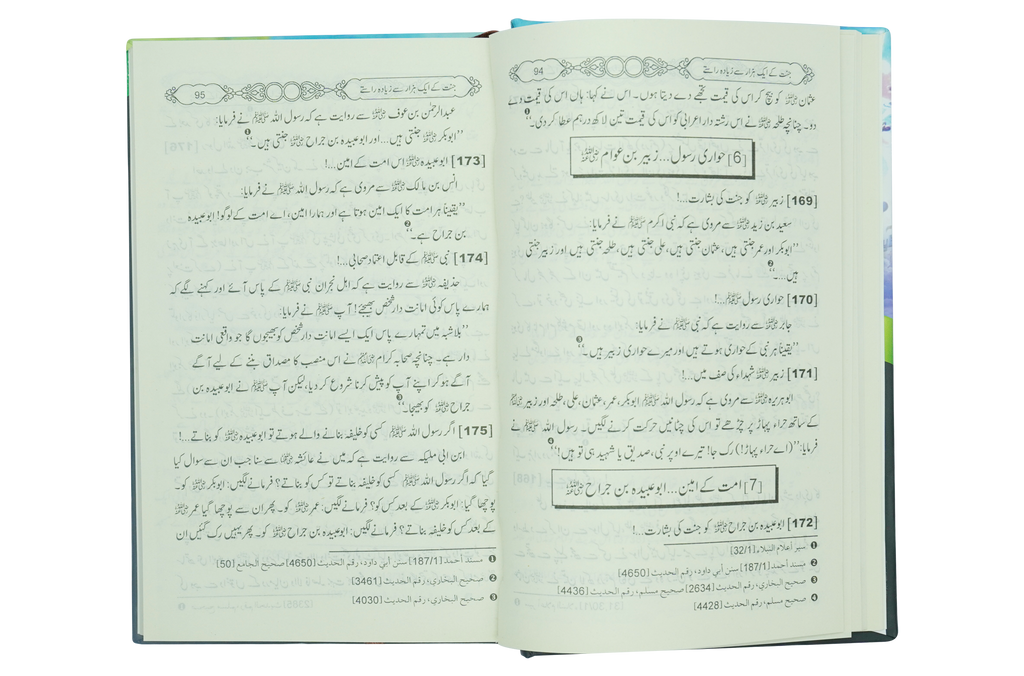 94
جنت کے ایک ہزار سے زیادہ راستے
عثمان ﷛ کو بیچ کر اس کی قیمت تجھے دے دیتا ہوں۔ اس نے کہا: ہاں اس کی قیمت دے
دو۔ چنانچہ طلحہ ﷛ نے اس رشتہ دار اعرابی کو اس کی قیمت تین لاکھ درہم عطا کردی۔❶
[6] حواری رسول... زبیر بن عوام ﷛
[169] زبیر ﷛ کو جنت کی بشارت...!
سعید بن زید ﷛ سے مروی ہے کہ نبی اکرم ﷺ نے فرمایا:
’’ابوبکر اور عمر جنتی ہیں، عثمان جنتی ہیں، علی جنتی ہیں، طلحہ جنتی ہیں اور زبیر جنتی
ہیں...۔‘‘❷
[170] حواری رسول ﷺ...!
جابر ﷛ سے روایت ہے کہ نبی ﷺ نے فرمایا:
’’یقیناً ہر نبی کے حواری ہوتے ہیں اور میرے حواری زبیر ہیں۔‘‘❸
[171] زبیر ﷛ شہداء کی صف میں...!
ابوہریرہ ﷛ سے مروی ہے کہ رسول اللہ ﷺ ابوبکر، عمر، عثمان، علی، طلحہ اور زبیر ﷢
کے ساتھ حراء پہاڑ پر چڑھے تو اس کی چٹانیں حرکت کرنے لگیں۔ رسول اللہ ﷺ نے
فرمایا: ’’(اے حراء پہاڑ!) رک جا! تیرے اوپر نبی، صدیق یا شہید ہی تو ہیں!‘‘❹
[7] امت کے امین... ابوعبیدہ بن جراح ﷛
[172] ابوعبیدہ بن جراح ﷛ کو جنت کی بشارت...!
❶ سیر أعلام النبلاء [32/1]
❷ مسند أحمد [187/1] سنن أبي داود، رقم الحديث [4650]
❸ صحيح البخاري، رقم الحديث [2634] صحيح مسلم، رقم الحديث [4436]
❹ صحيح مسلم، رقم الحديث [4428]
95
جنت کے ایک ہزار سے زیادہ راستے
عبدالرحمٰن بن عوف ﷛ سے روایت ہے کہ رسول اللہ ﷺ نے فرمایا:
’’ابوبکر ﷛ جنتی ہیں... اور ابوعبیدہ بن جراح ﷛ جنتی ہیں۔‘‘❶
[173] ابوعبیدہ ﷛ اس امت کے امین...!
انس بن مالک ﷛ سے مروی ہے کہ رسول اللہ ﷺ نے فرمایا:
’’یقیناً ہر امت کا ایک امین ہوتا ہے اور ہمارا امین، اے امت کے لوگو! ابوعبیدہ
بن جراح ہے۔‘‘❷
[174] نبی ﷺ کے قابل اعتماد صحابی...!
حذیفہ ﷛ سے روایت ہے کہ اہل نجران نبی ﷺ کے پاس آئے اور کہنے لگے کہ
ہمارے پاس کوئی امانت دار شخص بھیجئے! آپ ﷺ نے فرمایا:
’’بلاشبہ میں تمہارے پاس ایک ایسے امانت دار شخص کو بھیجوں گا جو واقعی امانت
دار ہے۔ چنانچہ صحابہ کرام ﷢ نے اس منصب کا مصداق بننے کے لیے آگے
آگے ہو کر اپنے آپ کو پیش کرنا شروع کر دیا، لیکن آپ ﷺ نے ابوعبیدہ بن
جراح ﷛ کو بھیجا۔‘‘❸
[175] اگر رسول اللہ ﷺ کسی کو خلیفہ بنانے والے ہوتے تو ابوعبیدہ ﷛ کو بناتے...!
ابن ابی ملیکہ سے روایت ہے کہ میں نے عائشہ ﷞ سے سنا جب ان سے سوال کیا
گیا کہ اگر رسول اللہ ﷺ کسی کو خلیفہ بناتے تو کس کو بناتے؟ فرمانے لگیں: ابوبکر ﷛ کو۔
پوچھا گیا: ابوبکر ﷛ کے بعد کس کو؟ فرمانے لگیں: عمر ﷛ کو۔ پھر ان سے پوچھا گیا عمر ﷛
کے بعد کس کو خلیفہ بناتے؟ فرمانے لگیں: ابوعبیدہ بن جراح ﷛ کو۔ پھر یہیں رک گئیں ان
❶ مسند أحمد [187/1] سنن أبي داود، رقم الحديث [4650] صحيح الجامع [50]
❷ صحيح البخاري، رقم الحديث [3461]
❸ صحيح البخاري، رقم الحديث [4030]